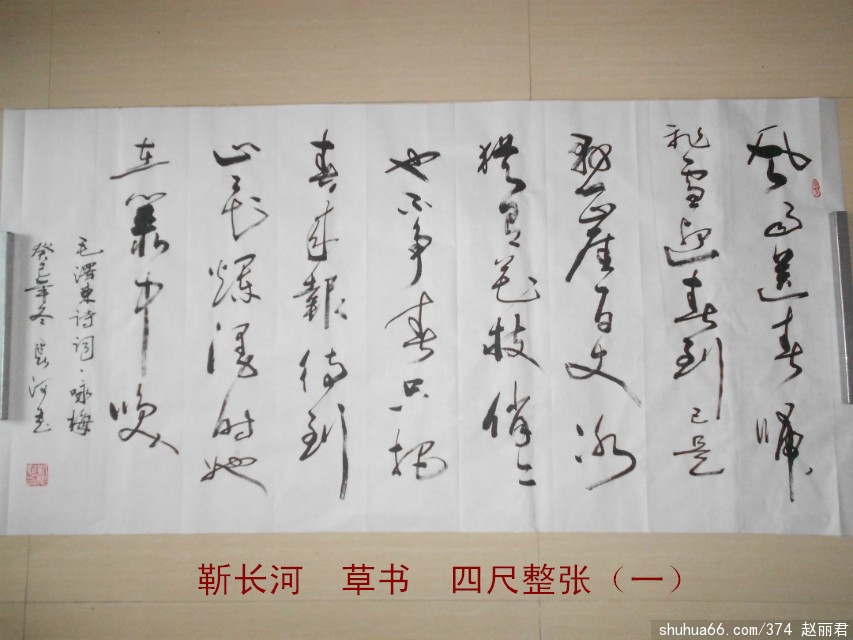 风雨送春歸
飛雪迎春到已是
懸崖百丈冰
猶有花枝俏々
也不争春只把
春来報待到
山花爛漫时她
在叢中笑
毛澤東诗词·咏梅
癸巳年冬长河书
靳长河 草书 四尺整张（一）
shuhua66.com/374 赵丽君